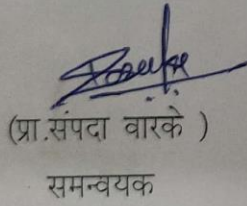 (प्रा.संपदा वारके )
समन्वयक